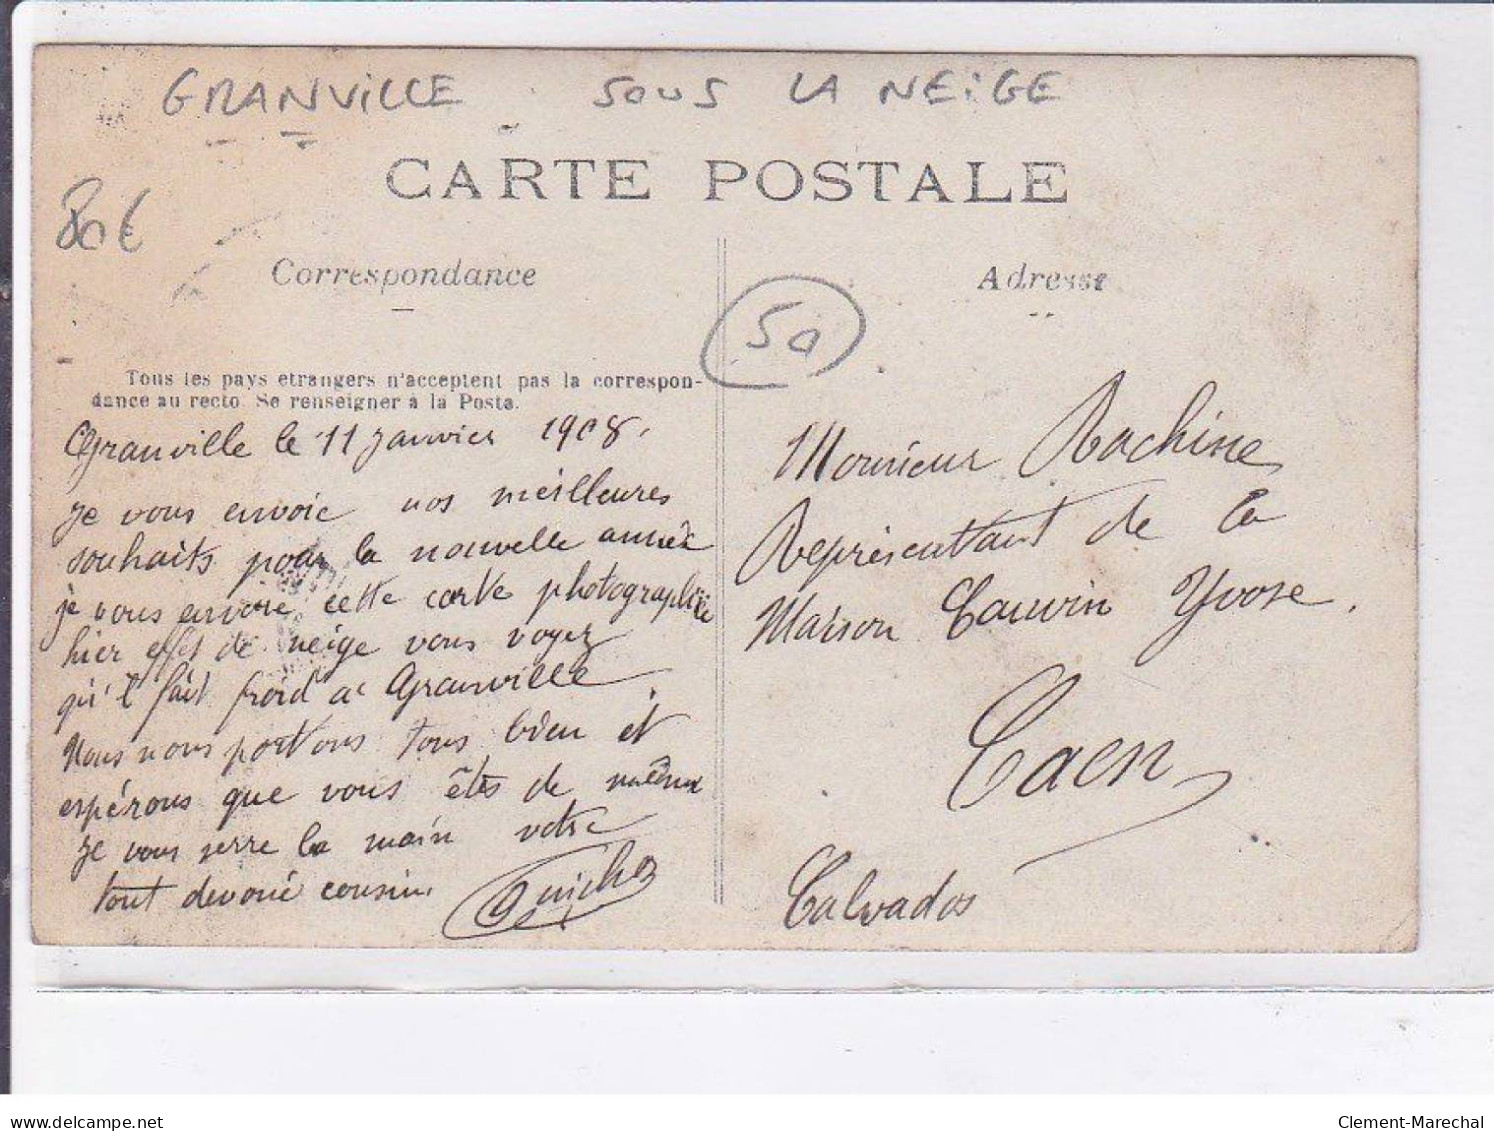 GRANVILLE SOUS LA NEIGE
CARTE POSTALE
80€
Correspondance
Tous les pays etrangers n'acceptent pas la correspon-
dance au recto. Se renseigner à la Poste.
Granville le 11 janvier 1908.
je vous envoie nos meilleures
souhaits pour la nouvelle année
je vous envoie cette carte photographiée
hier effet de neige vous voyez
qu'il fait froid a Granville.
Nous nous portons tous bien et
espérons que vous êtes de même
je vous serre la main votre
tout devoué cousin.
50
Adresse
Monsieur Rachine
Représentant de la
Maison Cauvin Yvose.
Caen
Calvados
delcampe.net
Clement-Marechal